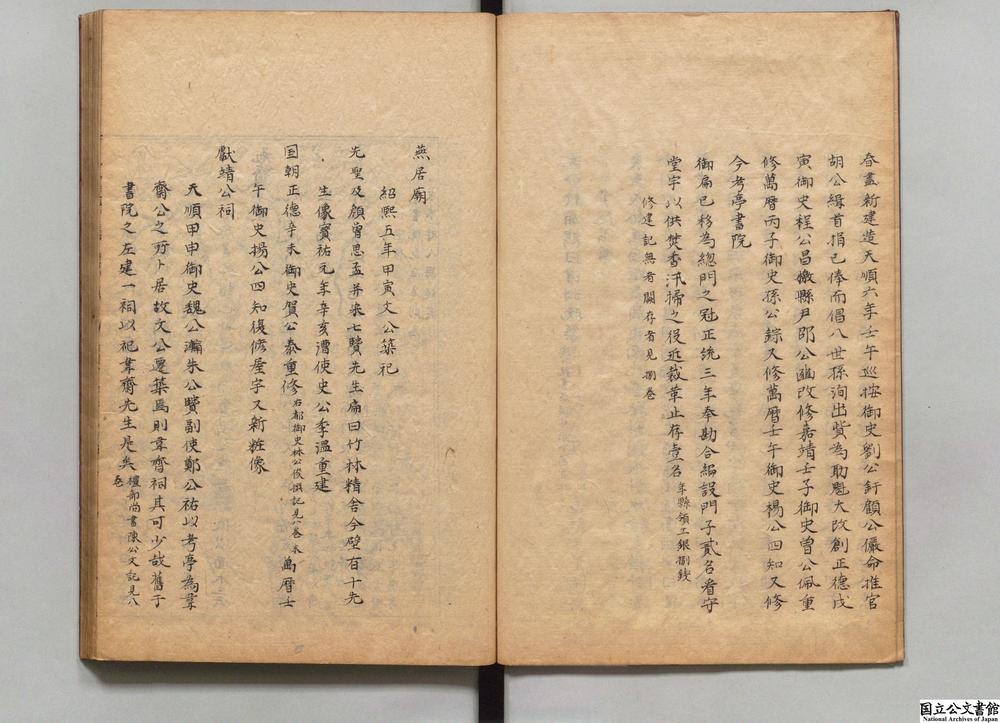 春盡新建造天順六年壬午巡按御史劉公釬顧公儼命推官
胡公緝首捐已俸而倡八世孫洵出貲為助魁大改創正德戊
寅御史程公昌檄縣尹邵公豳改修嘉靖壬子御史曾公佩重
修萬曆丙子御史孫公錝又修萬曆壬午御史楊公四知又修
今考亭書院
御扁已移為總門之冠正統三年奉勘合編設門子貳名看守
堂宇以供焚香汛掃之役近裁革止存壹名年縣領工銀捌錢
修建記無者闕存者見捌卷
燕居廟
紹熙五年甲寅文公築祀
先聖及顏曾思孟并朱七贒先生扁曰竹林精舍今壁有十先
生像寳祐元年辛亥漕使史公季溫重建
囯朝正德辛未御史賀公泰重修右都御史林公俊撰記見八卷末萬曆壬
午御史揚公四知復修屋宇又新粧像
獻靖公祠
天順甲申御史魏公瀚朱公贒副使鄭公祐以考亭為韋
齋公之所卜居故文公遷築焉則韋齋祠其可少哉舊于
書院之左建一祠以祀韋齋先生是矣禮部尚書陳公文記見八卷
国立公文書館
National Archives of Japan